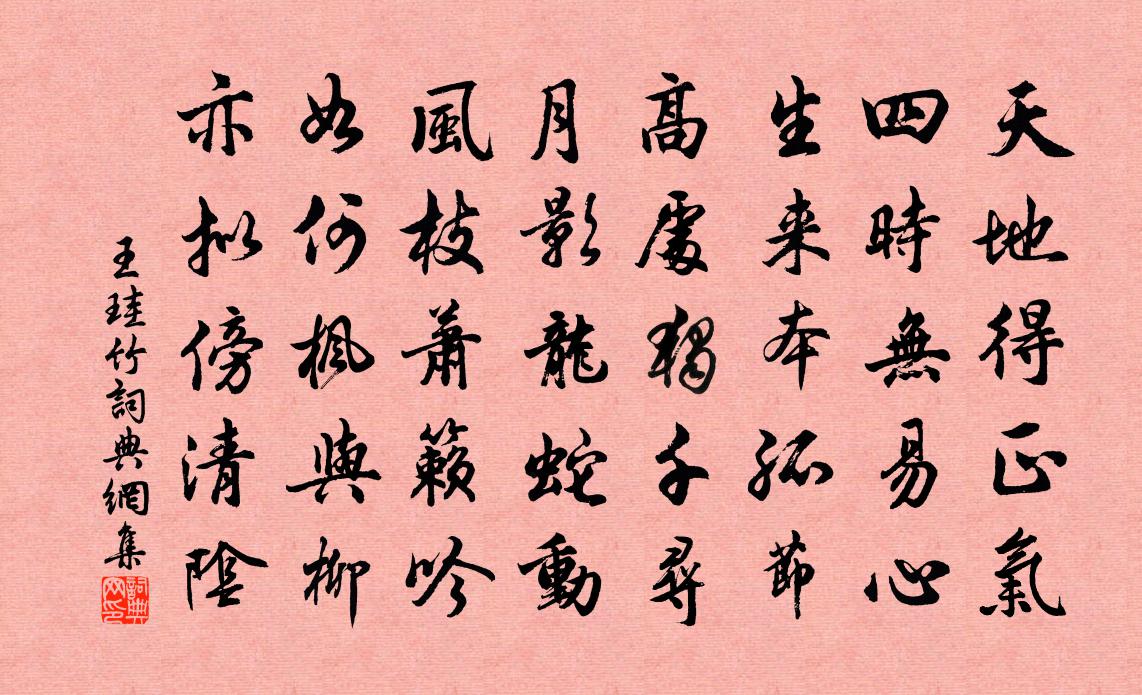 天地得正氣
四時無易心
生来本孤節
高處獨千尋
月影龍蛇動
風枝蕭籟吟
如何楓與柳
亦拟傍清陰
王珪竹詞典網集
詞典网印